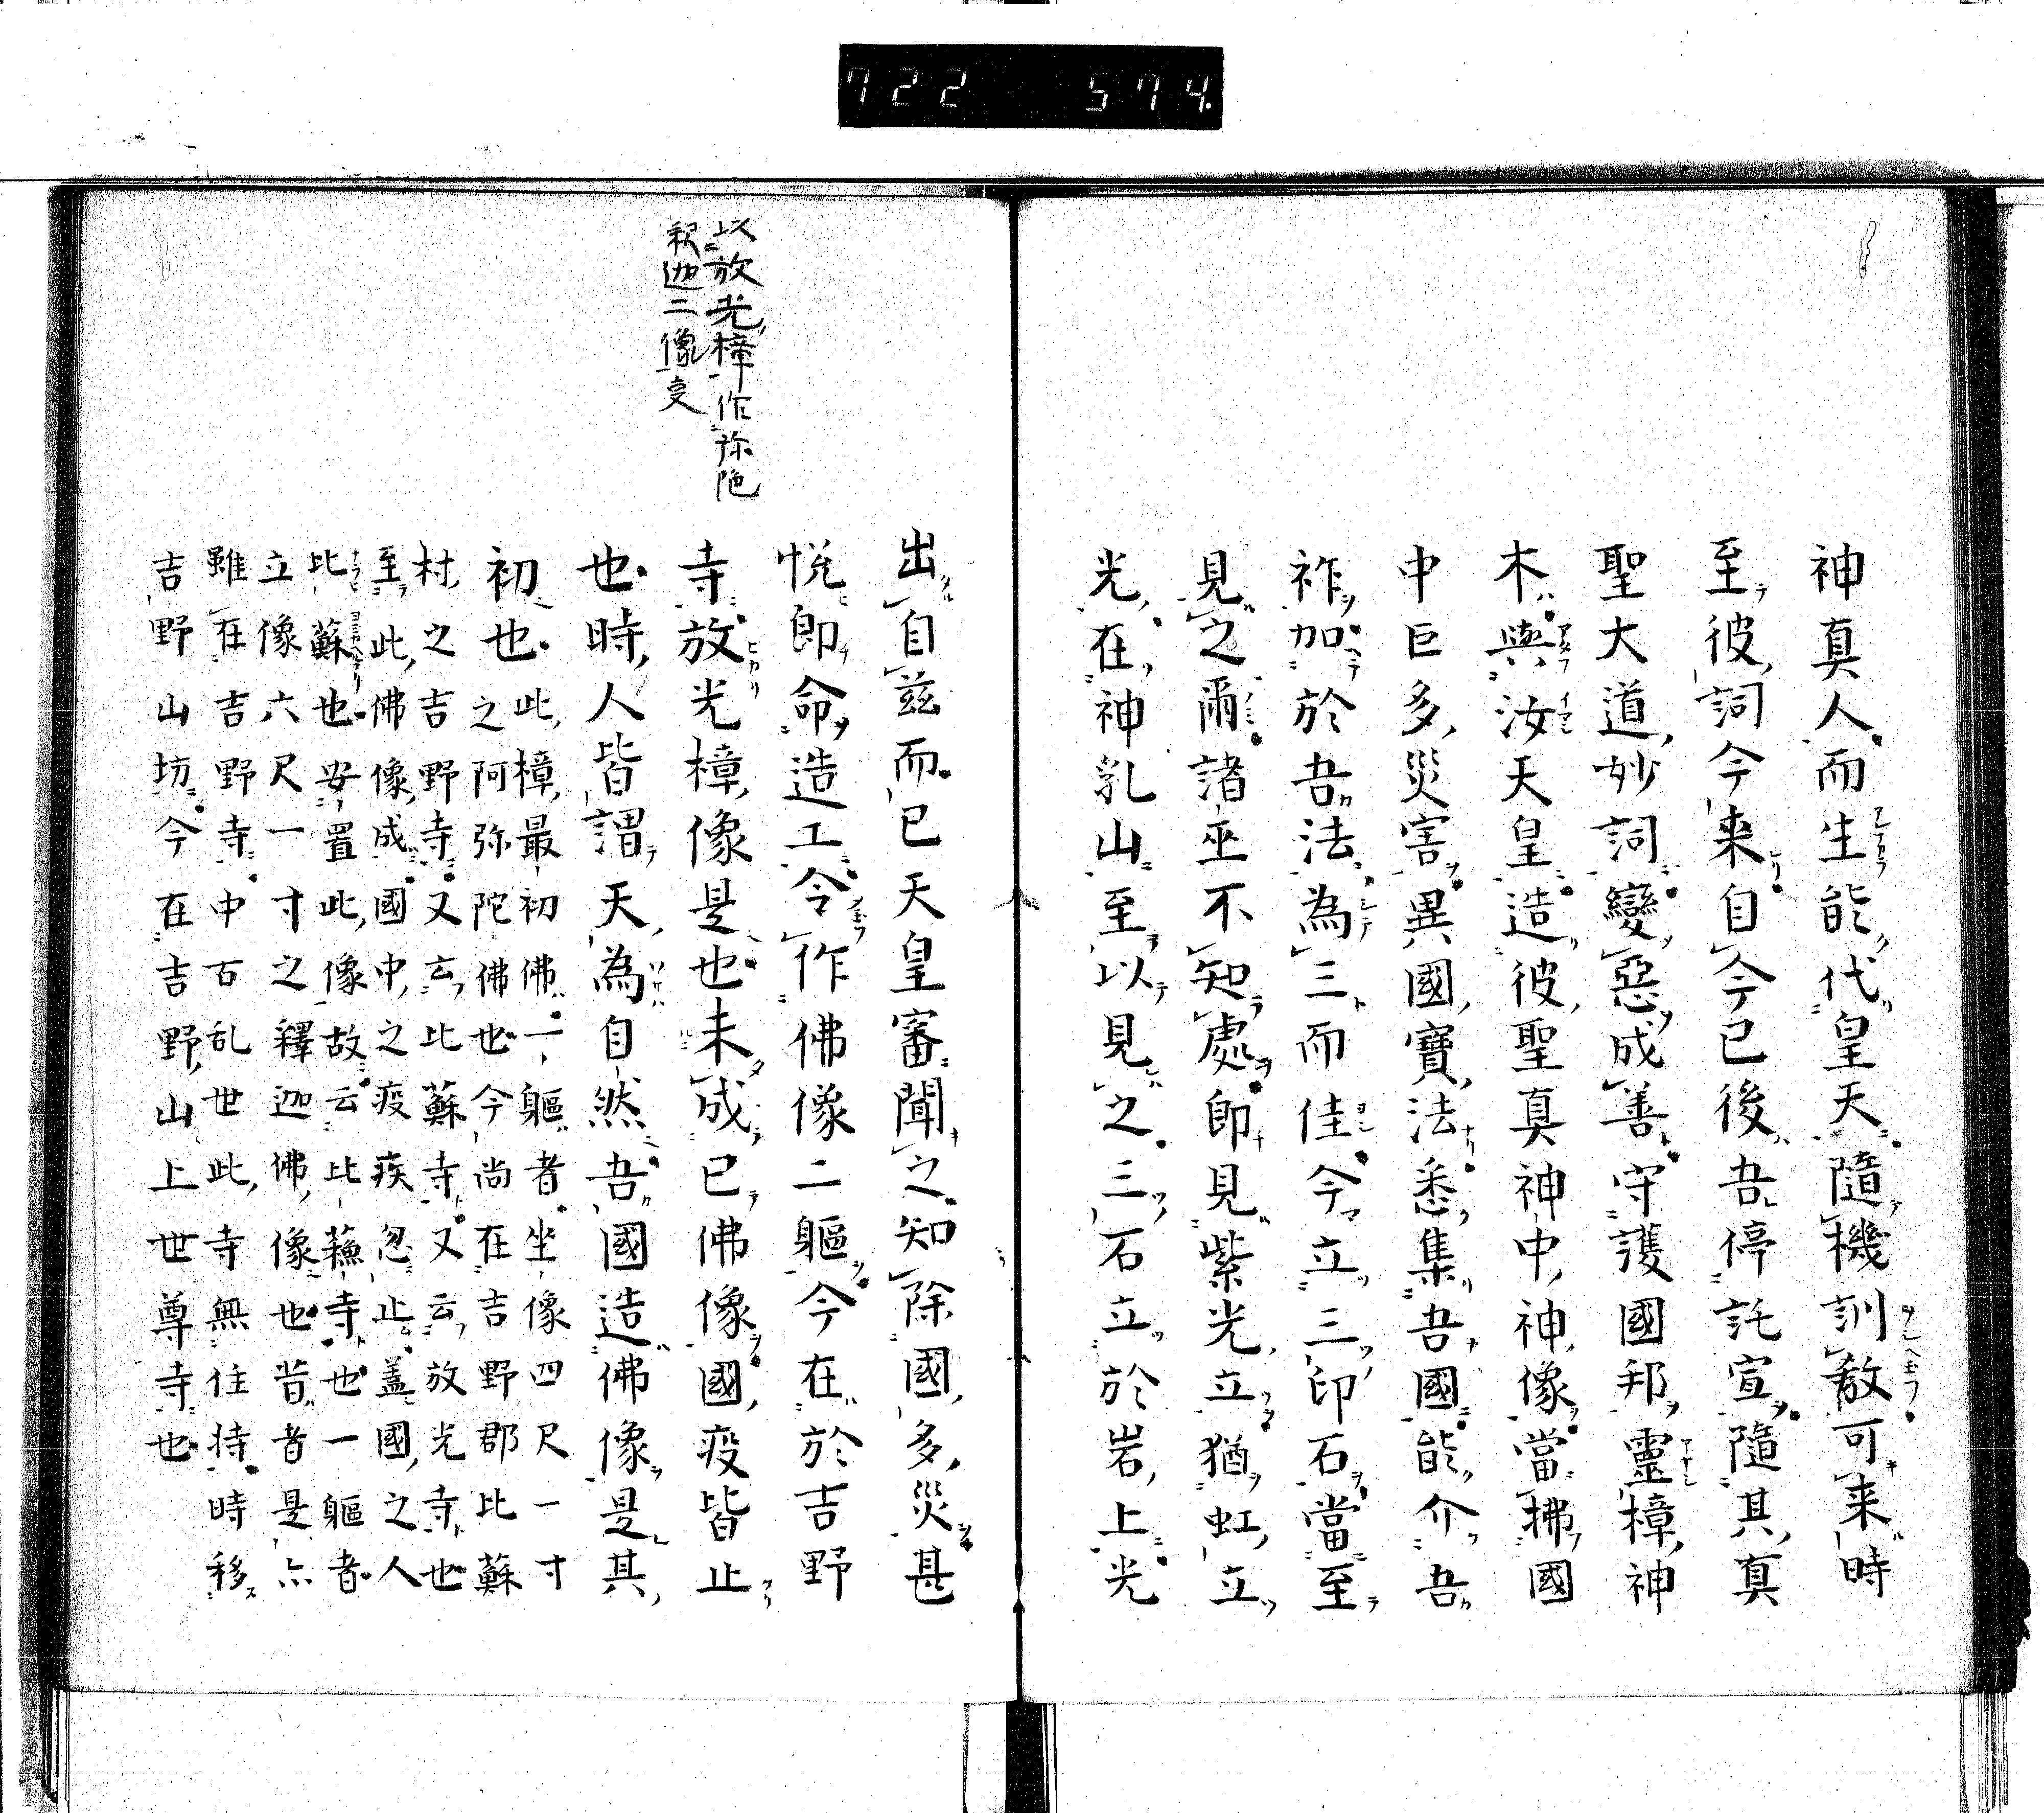 722 574.
神真人而生能代皇天隨機訓教可来時
至彼詞今来自今已後吾停託宣隨其真
聖大道妙詞變惡成善守護國邦靈樟神
木與汝天皇造彼聖真神中神像當拂國
中巨多災害異國寶法悉集吾國能介吾
祚加於吾法為三而佳今立三印石當至
見之爾諸巫不知處即見紫光立猶虹立
光在神乳山至以見之三石立於岩上光
以放光樟作弥陁
釈迦二像叓
出自茲而已天皇審聞之知除國多災甚
悅即命造工令作佛像二軀今在於吉野
寺放光樟像是也未成已佛像國疫皆止
也時人皆謂天為自然吾國造佛像是其
初也
此樟最初佛一軀者坐像四尺一寸
之阿弥陀佛也今尚在吉野郡比蘇
村之吉野寺又云比蘇寺又云放光寺也
至此佛像成國中之疫疾忽止蓋國之人
比蘇也安置此像故云比蘓寺也一軀者
立像六尺一寸之釋迦佛像也昔者是亦
雖在吉野寺中古乱世此寺無住持時移
吉野山坊今在吉野山上世尊寺也